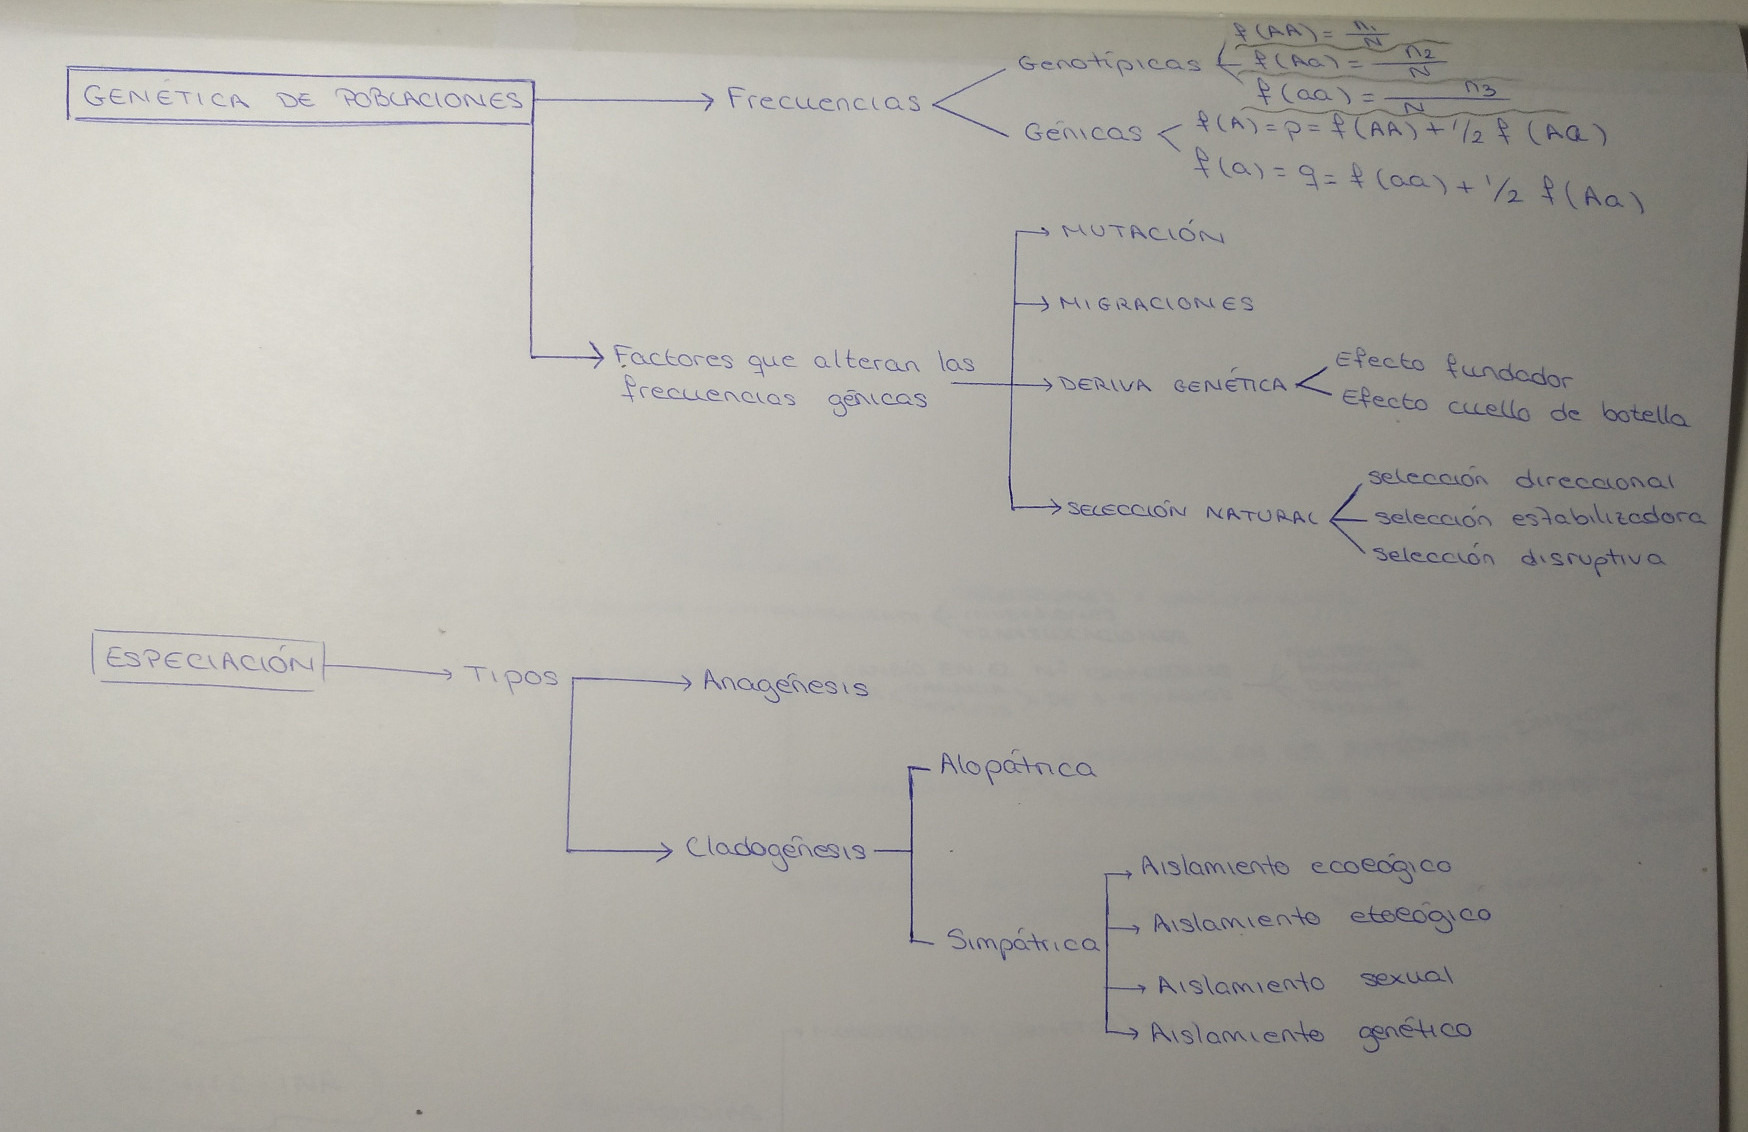 f(AA) = n1/N
Genotípicas f(Aa) = n2/N
f(aa) = n3/N
GENÉTICA DE POBLACIONES Frecuencias
Génicas f(A) = p = f(AA) + 1/2 f(Aa)
f(a) = q = f(aa) + 1/2 f(Aa)
MUTACIÓN
MIGRACIONES
Factores que alteran las
frecuencias génicas
DERIVA GENÉTICA
Efecto fundador
Efecto cuello de botella
SELECCIÓN NATURAL
selección direccional
selección estabilizadora
selección disruptiva
ESPECIACIÓN Tipos Anagénesis
Alopátrica
Cladogénesis
Aislamiento ecológico
Aislamiento etológico
Simpátrica
Aislamiento sexual
Aislamiento genético